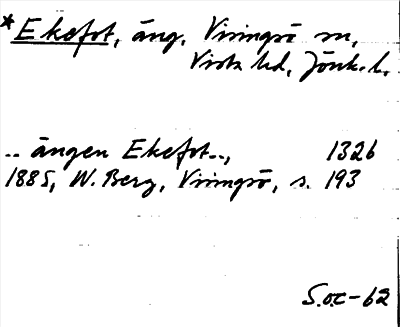 *Ekefot, äng, Visingsö sn,
Vista hd, Jönk. l.
.. ängen Ekefot..,
1326
1885, W. Berg, Visingsö, s. 193
S.O.C-62